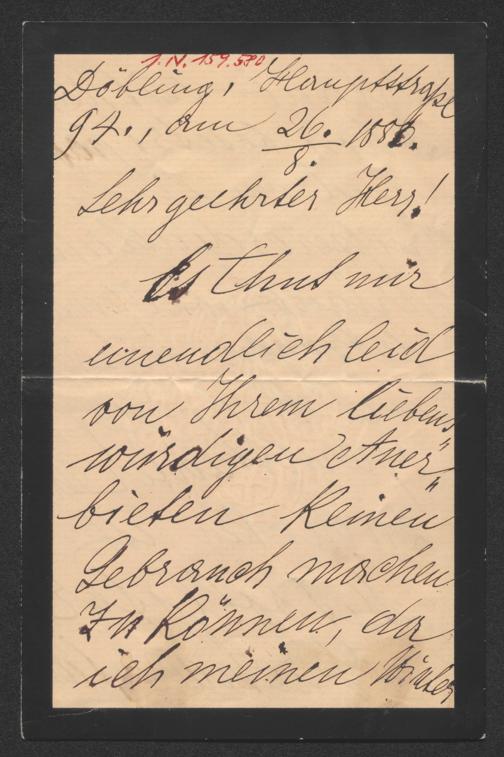 I.N. 159.580
Döbling, Hauptstraße
94., am 26./8. 188.
Sehr geehrter Herr!
Es thut mir
unendlich leid
von Ihrem liebens
würdigen Aner"
bieten keinen
Gebrauch machen
zu können, da
ich meinen Winter